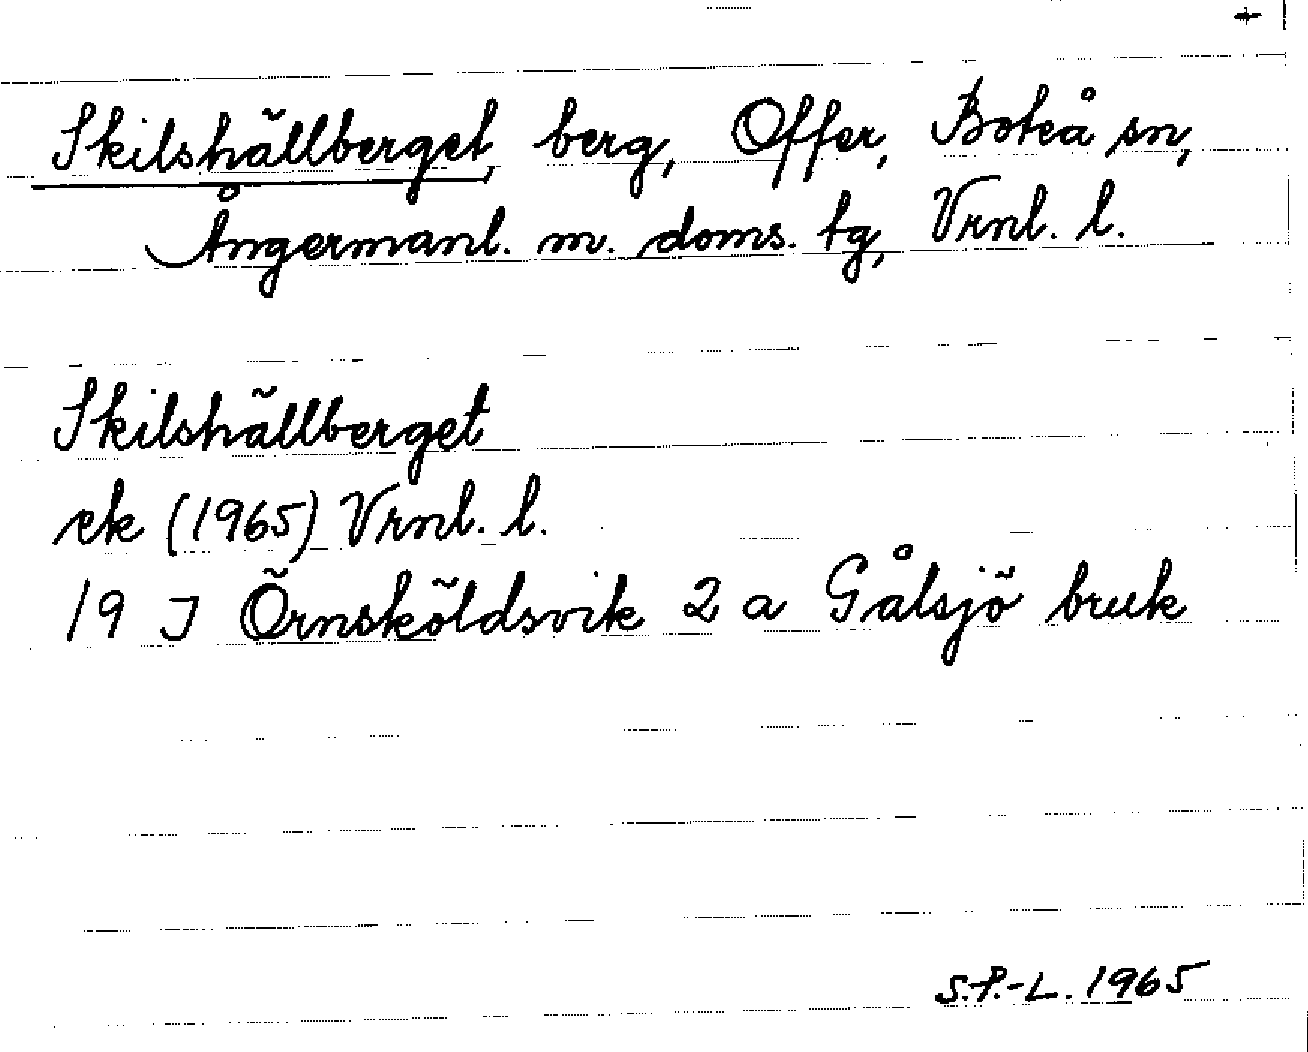 +
Skilshällberget, berg, Offer, Boteå sn,
Ångermanl. m. doms. tg, Vrnl. l.
Skilshällberget
ek (1965) Vrnl. l.
19 J Örnsköldsvik 2 a Gålsjö bruk
S.P.-L. 1965